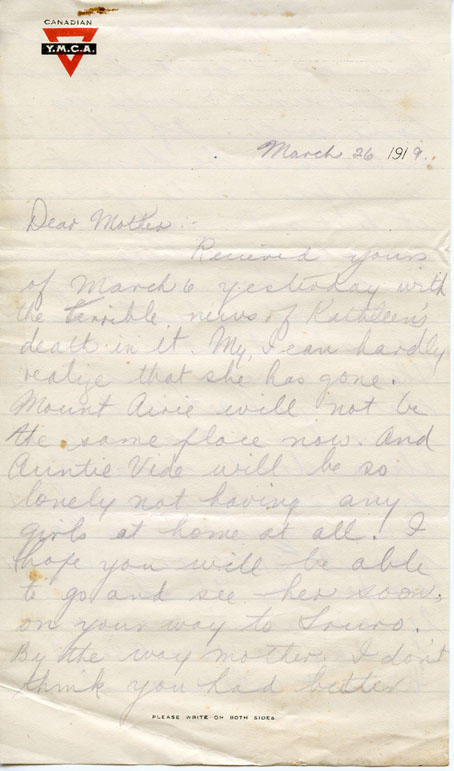 CANADIAN
Y.M.C.A.
March 26 1919.
Dear Mother:
Received yours
of March 6 yesterday with
the terrible news of Kathleen's
death in it. My, I can hardly
realize that she has gone.
Mount Airie will not be
the same place now. And
Auntie Vide will be so
lonely not having any
girls at home at all. I
hope you will be able
to go and see her soon,
on your way to Truro.
By the way mother, I don't
think you had better
PLEASE WRITE ON BOTH SIDES